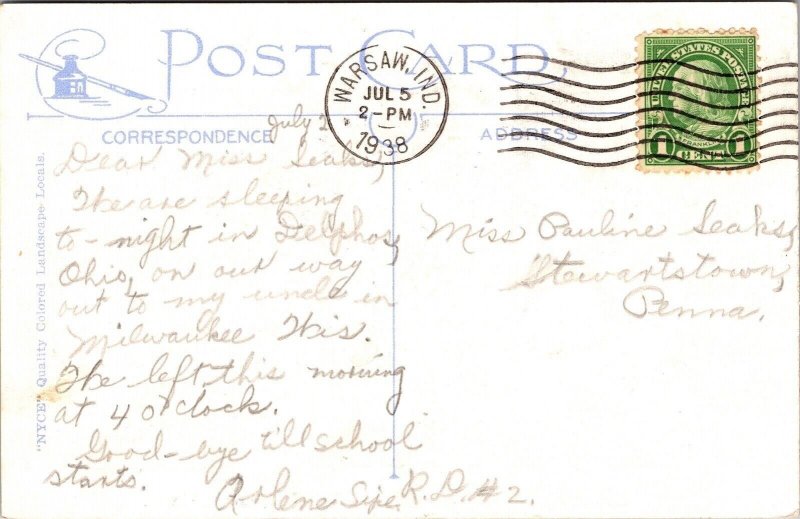 POST CARD
WARSAW, IND.
JUL 5
2-PM
1938
UNITED STATES POSTAGE
FRANKLIN
1 CENT 1
CORRESPONDENCE
ADDRESS
"NYCE" Quality Colored Landscape Locals.
July 2
Dear Miss Leaks,
We are sleeping
to-night in Delphos,
Ohio, on our way
out to my uncle in
Milwaukee Wis.
We left this morning
at 4 o'clock.
Good-bye till school
starts.
Arlene Sipe R.D. #2.
Miss Pauline Leaks,
Stewartstown,
Penna.